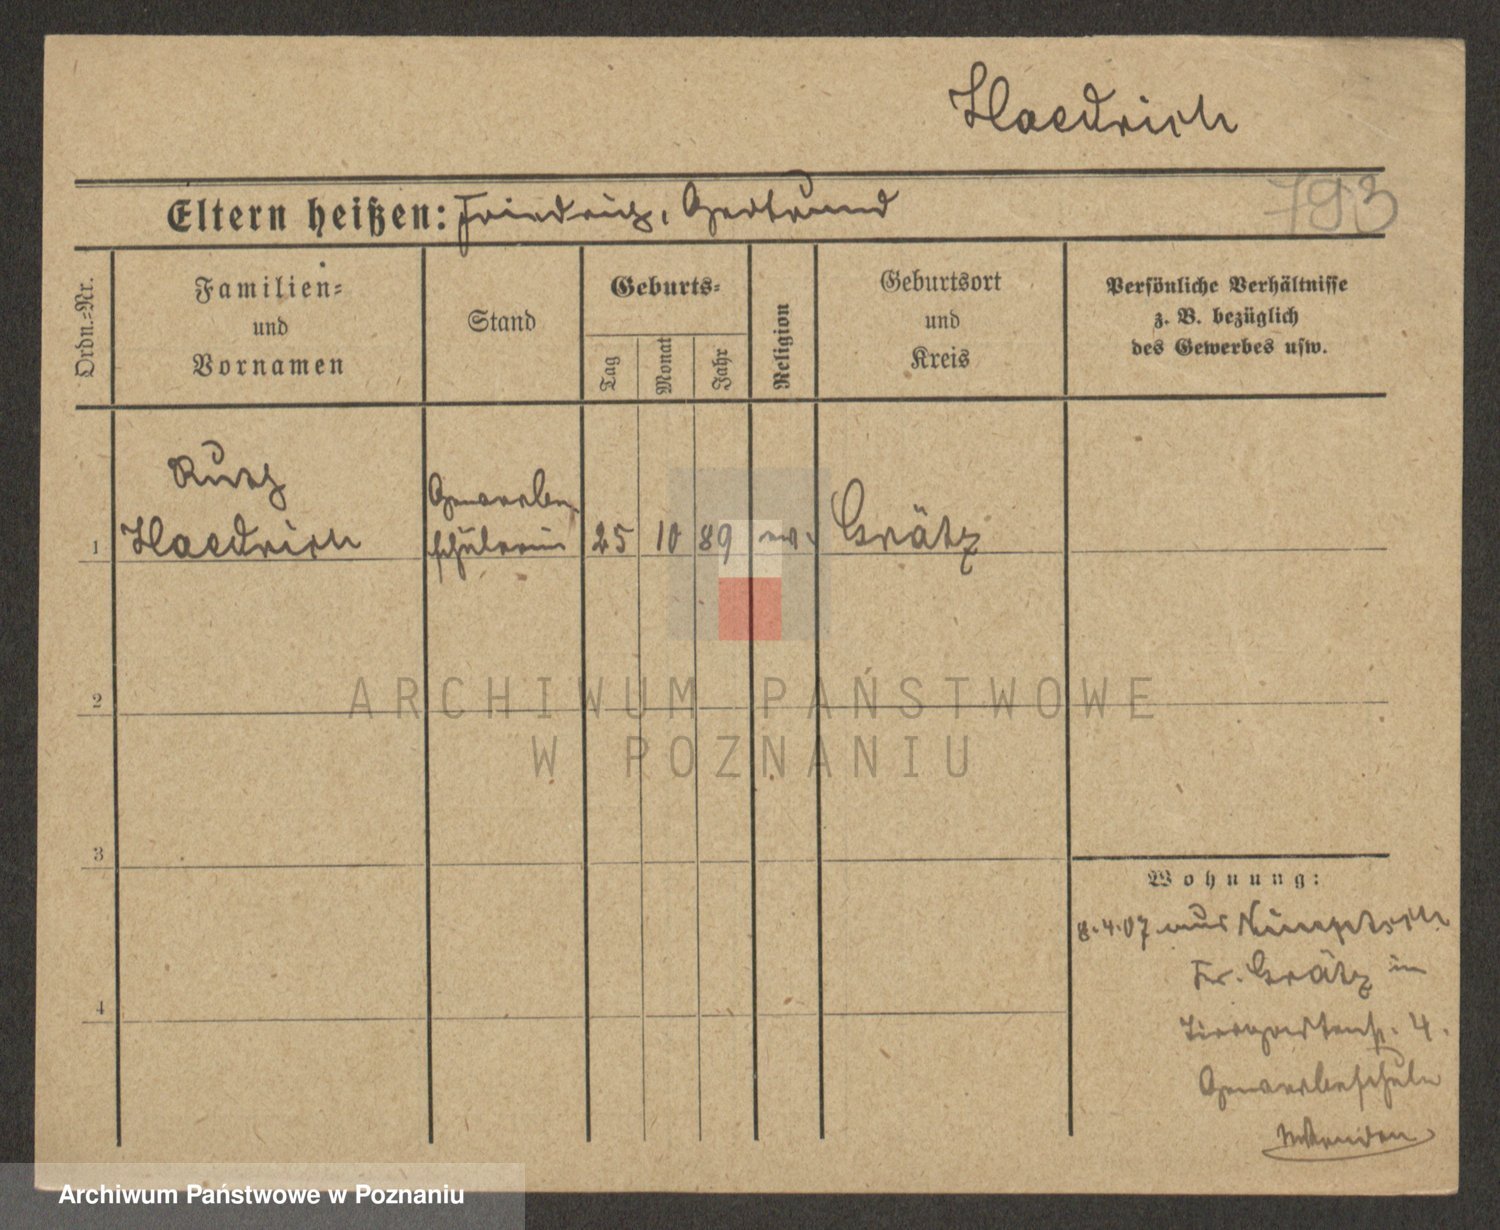 Haedrich
Eltern heißen: Friedrich, Gertrud
793
Ordn.-Nr.
Familien-
und
Vornamen
Stand
Geburts-
Tag
Monat
Jahr
Religion
Geburtsort
und
Kreis
Persönliche Verhältnisse
z. B. bezüglich
des Gewerbes usw.
1
Ruth
Haedrich
Gewerbe-
schülerin
25 10 89 ev. Grätz
2
3
4
Wohnung:
8.4.07 aus
Kr. Grätz in
Tiergartenstr. 4.
Gewerbeschule
ARCHIWUM PAŃSTWOWE
W POZNANIU
Archiwum Państwowe w Poznaniu